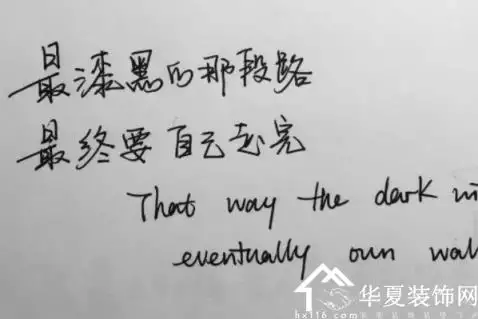 最漆黑的那段路
最终要自己走完
That way the dark
eventually own
华夏装饰网
hx116.com